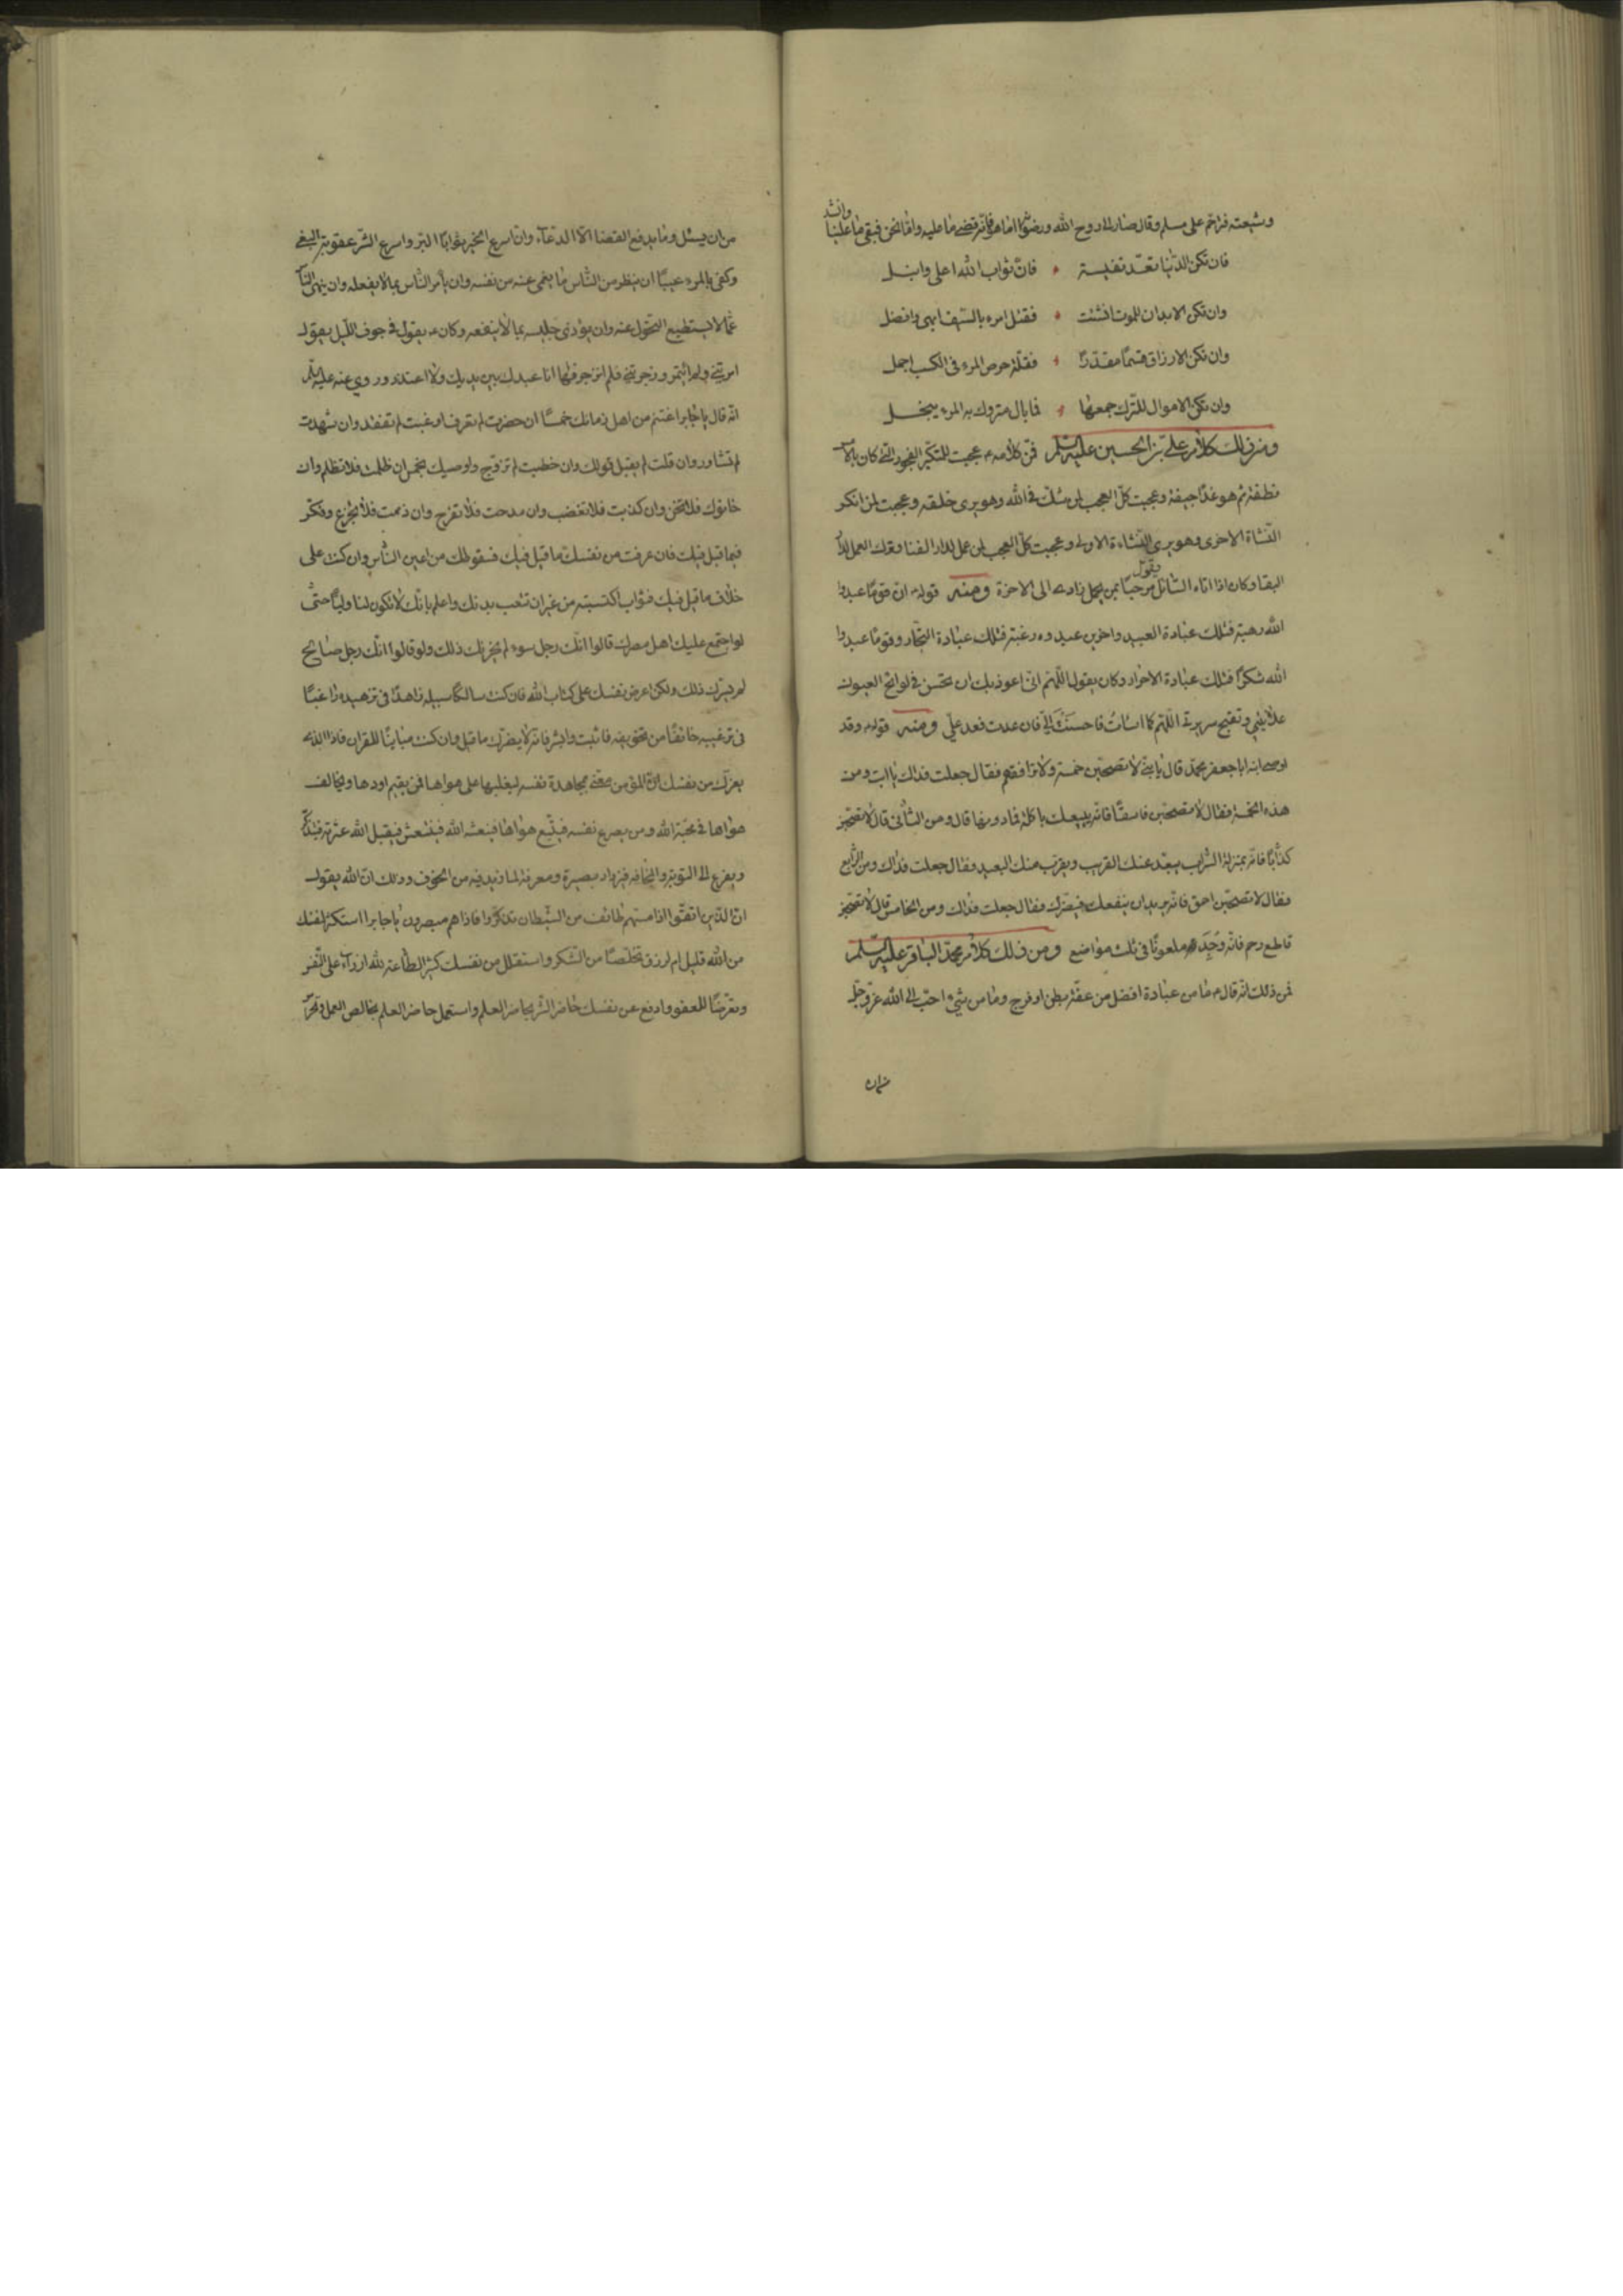 وشيعته فترحم على مسلم وقال صار الى روح الله ورضوانه اما هو فانه قضى ما عليه وامّا نحن فبقى ما علينا وانشد
فان تكن الدّنيا تعدّ نفيسة فانّ ثواب الله اعلى وانبل
وان تكن الابدان للموت انشئت فقتل امرء بالسّيف ابهى وافضل
وان تكن الارزاق قسمًا مقدّرًا فقلّة حرص المرء فى الكسب اجمل
وان تكن الاموال للترك جمعها فما بال متروك به المرء يبخل
ومن ذلك كلام على بن الحسين عليه السلم فمن كلامه ع عجبت للمتكبّر الفخور الذى كان بالامس
نطفة ثم هو غدًا جيفة وعجبت كلّ العجب لمن شكّ فى الله وهو يرى خلقه وعجبت لمن انكر
النّشاة الاخرى وهو يرى النّشاءة الاولى وعجبت كلّ العجب لمن عمل لدار الفنا وترك العمل لدار
البقا وكان اذا اتاه السّائل يقول مرحبًا بمن يحمل زادى الى الاخرة ومنه قوله ع انّ قومًا عبدوا
الله رهبة فتلك عبادة العبيد واخرين عبدوه رغبة فتلك عبادة التجّار وقومًا عبدوا
الله شكرًا فتلك عبادة الاحرار وكان يقول اللّهم انى اعوذ بك ان تحسن فى لوائح العيون
علانيتى وتقبح سريرتى اللّهم كما اسأتُ فاحسنتَ الىّ فان عدت فعد علىّ ومنه قوله ع وقد
اوصى ابنه ابا جعفر محمّد قال يا بنى لا تصحبّن خمسة ولا ترافقهم فقال جعلت فداك يا ابت ومن
هذه الخمسة فقال لا تصحبّن فاسقًا فانّه يبيعك باكلة فما دونها قال ومن الثانى قال لا تصحبّن
كذّابًا فانّه بمنزلة السّراب يبعّد عنك القريب ويقرّب منك البعيد فقال جعلت فداك ومن الرّابع
فقال لا تصحبّن احمق فانّه يريد ان ينفعك فيضرّك فقال جعلت فداك ومن الخامس قال لا تصحبّن
قاطع رحم فانّه وُجِدَ ملعونًا فى ثلث مواضع ومن ذلك كلام محمّد الباقر عليه السّلم
فمن ذلك انّه قال ع ما من عبادة افضل من عفّة بطن او فرج وما من شىء احبّ الى الله عزّ وجلّ
من ان
من ان يسئل وما يدفع القضا الّا الدّعاء وانّ اسرع الخير ثوابًا البرّ واسرع الشّر عقوبة البغى
وكفى بالمرء عيبًا ان ينظر من النّاس ما يعمى عنه من نفسه وان يأمر النّاس بما لا يفعله وان ينهى الناس
عمّا لا يستطيع التحّول عنه وان يؤذى جليسه بما لا ينفعه وكان ع يقول فى جوف اللّيل يقول
امرتنى ولم ائتمر وزجرتنى فلم انزجر فها انا عبدك بين يديك ولا اعتذر وروى عنه عليه السلم
انّه قال يا جابر اغتنم من اهل زمانك خمسًا ان حضرت لم تعرف او غبت لم تفتقد وان شهدت
لم تشاور وان قلت لم يقبل قولك وان خطبت لم تزوّج واوصيك بخمس ان ظلمت فلا تظلم وان
خانوك فلا تخن وان كذبت فلا تغضب وان مدحت فلا تفرح وان ذممت فلا تجزع وفكّر
فيما قيل فيك فان عرفت من نفسك ما قيل فيك فسقوطك من اعين النّاس وان كنت على
خلاف ما قيل فيك فثواب اكتسبته من غير ان تتعب بدنك واعلم بانّك لا تكون لنا وليًّا حتّى
لو اجتمع عليك اهل مصرك قالوا انّك رجل سوء لم يحزنك ذلك ولو قالوا انّك رجل صالح
لم يسرّك ذلك ولكن اعرض نفسك على كتاب الله فان كنت سالكًا سبيله زاهدًا فى تزهيده راغبًا
فى ترغيبه خائفًا من تخويفه فاثبت وابشر فانّه لا يضرّك ما قيل وان كنت مباينًا للقران فماذا الذى
يغرّك من نفسك انّ المؤمن معنىّ بمجاهدة نفسه ليغلبها على هواها فمن يقيم اودها ويخالف
هواها فى محبّة الله ومن يصرع نفسه فيتّبع هواها فينعشه الله فينتعش فيقيل الله عثرته فيتذكّر
ويفزع الى التّوبة والمخافة فيزداد بصيرة ومعرفة لما زيد فيه من الخوف وذلك انّ الله يقول
انّ الّذين اتّقوا اذا مسّهم طائف من الشّيطان تذكّروا فاذا هم مبصرون يا جابر استكثر لنفسك
من الله قليل الرزق تخلّصًا من الشكر واستقلل من نفسك كثير الطّاعة لله ازراء على النّفس
وتعرّضًا للعفو وادفع عن نفسك حاضر الشّر بحاضر العلم واستعمل حاضر العلم بخالص العمل وتحرّز